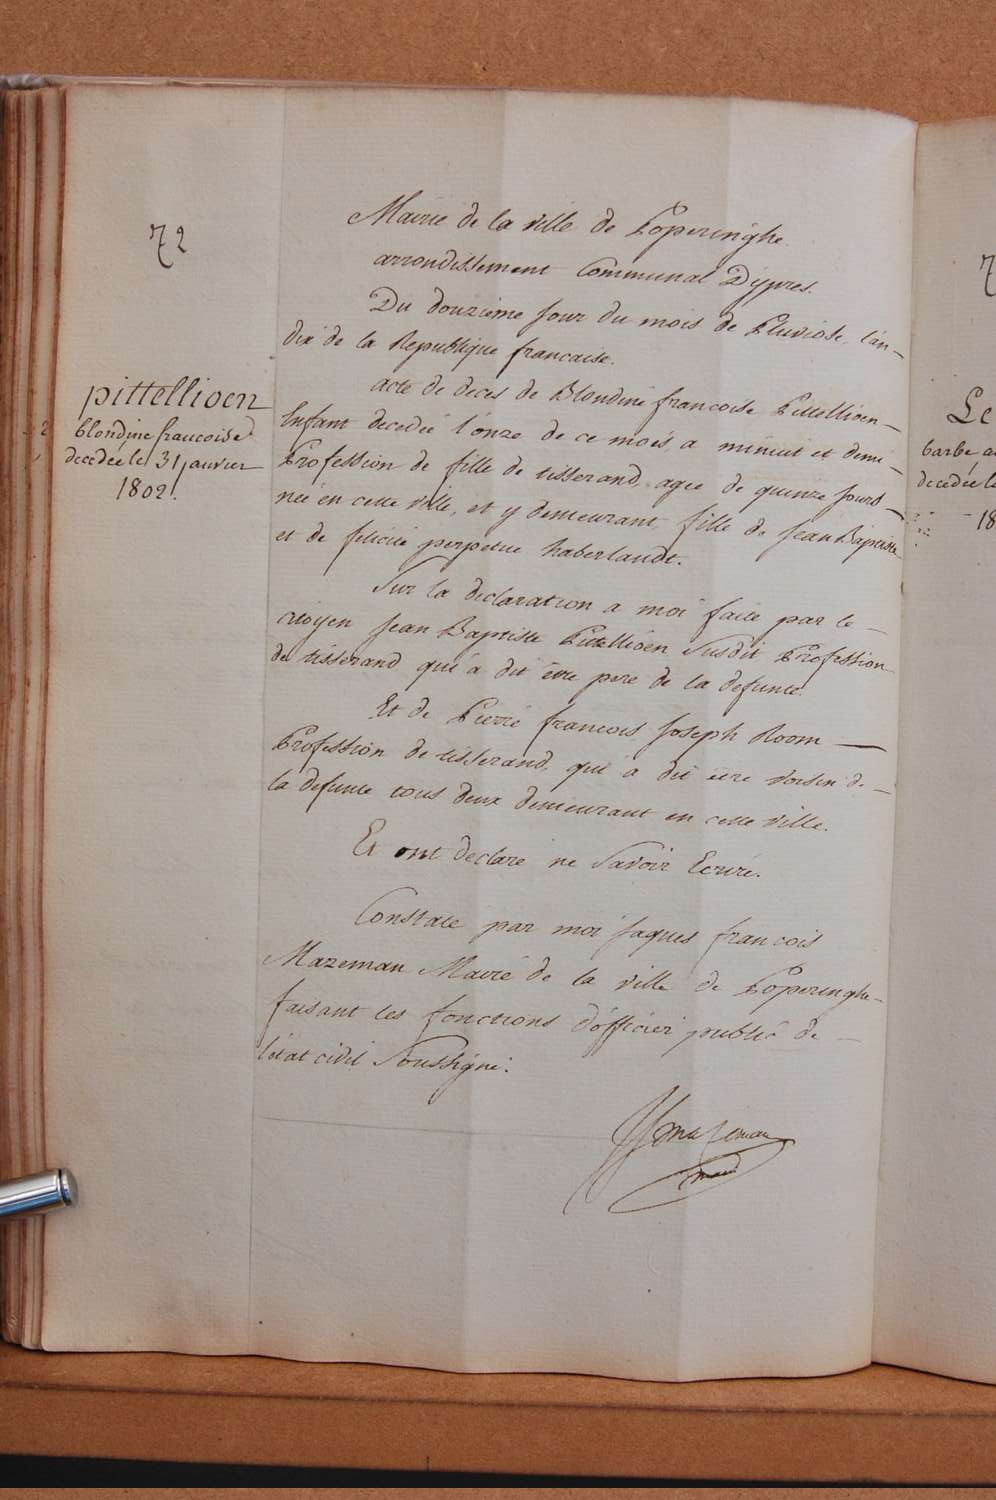 72
pittellioen
blondine francoise
decedée le 31 janvier
1802.
Mairie de la ville de Poperinghe.
arrondissement Communal D'ypres.
Du douzieme jour du mois de Pluviose, l'an
dix de la Republique francaise.
acte de deces de Blondine francoise Pittellioen
Enfant decedée l'onze de ce mois, a minuit et demi
Profession de fille de tisserand, agee de quinze jours
née en cette ville, et y demeurant, fille de Jean Baptiste
et de felicité perpetue haberlandt.
Sur la declaration a moi faite par le
citoyen Jean Baptiste Pittellioen susdit Profession
de tisserand qui a dit être pere de la defunte.
Et de Pierre francois Joseph Room
Profession de tisserand, qui a dit être voisin de
la defunte tous deux demeurant en cette ville.
Et ont declaré ne savoir Ecrire.
Constaté par moi Jaques francois
Mazeman Maire de la ville de Poperinghe
faisant les fonctions d'officier public de
l'état civil soussigné.
Mazeman
Le
barbe
decedée le
18